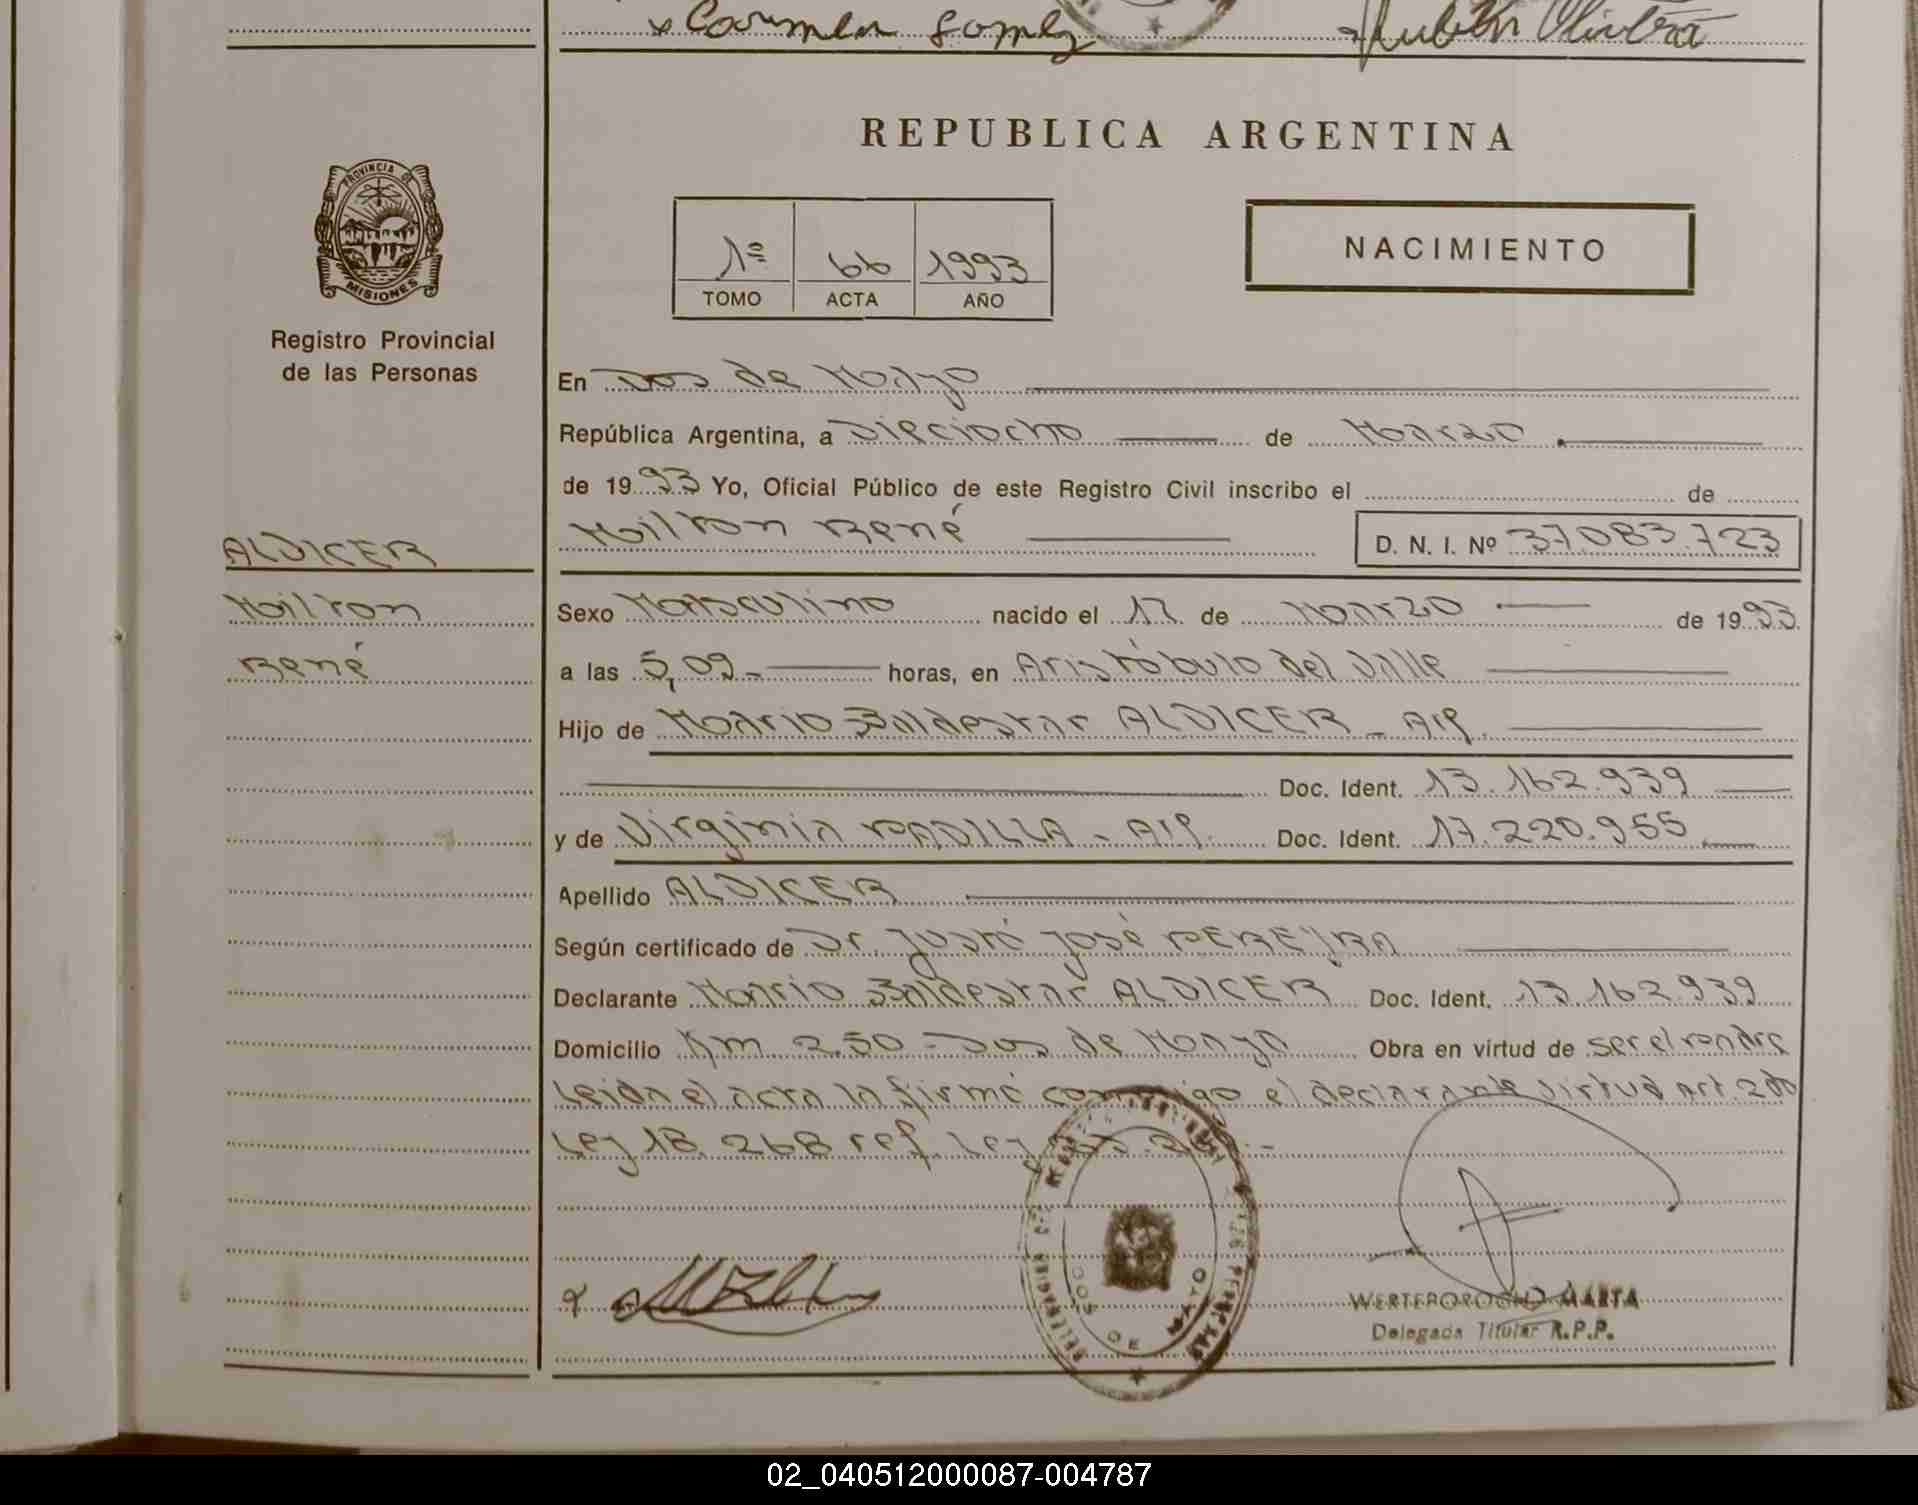 Carmen Gomez
Rubén Olivera
REPUBLICA ARGENTINA
PROVINCIA DE
MISIONES
Registro Provincial
de las Personas
1º 66 1993
TOMO ACTA AÑO
NACIMIENTO
En Dos de Mayo
República Argentina, a Dieciocho de Marzo
de 1993 Yo, Oficial Público de este Registro Civil inscribo el de
Milton René D. N. I. Nº 37.083.723
ALDICER
Milton
René
Sexo Masculino nacido el 17 de Marzo de 1993
a las 5,09 horas, en Aristóbulo del Valle
Hijo de Mario Baldestar ALDICER - Arg.
Doc. Ident. 13.162.939
y de Virginia PADILLA - Arg. Doc. Ident. 17.220.955
Apellido ALDICER
Según certificado de Dr. Justo José PEREYRA
Declarante Mario Baldestar ALDICER Doc. Ident. 13.162.939
Domicilio Km 250 - Dos de Mayo Obra en virtud de ser el padre
Leida el acta la firmó conmigo el declarante virtud Art.
Ley 18.268 ref. Ley
DOS DE MAYO
MARTA
Delegada Titular R.P.P.
02_040512000087-004787